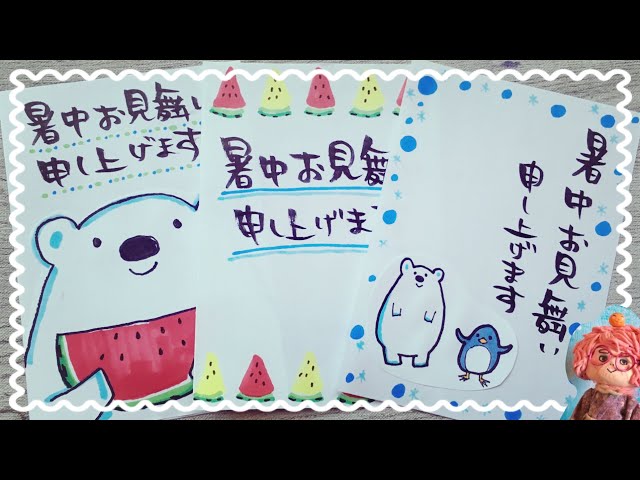 暑中お見舞い
申し上げます
暑中お見舞
申し上げま
暑中お見舞い
申し上げます